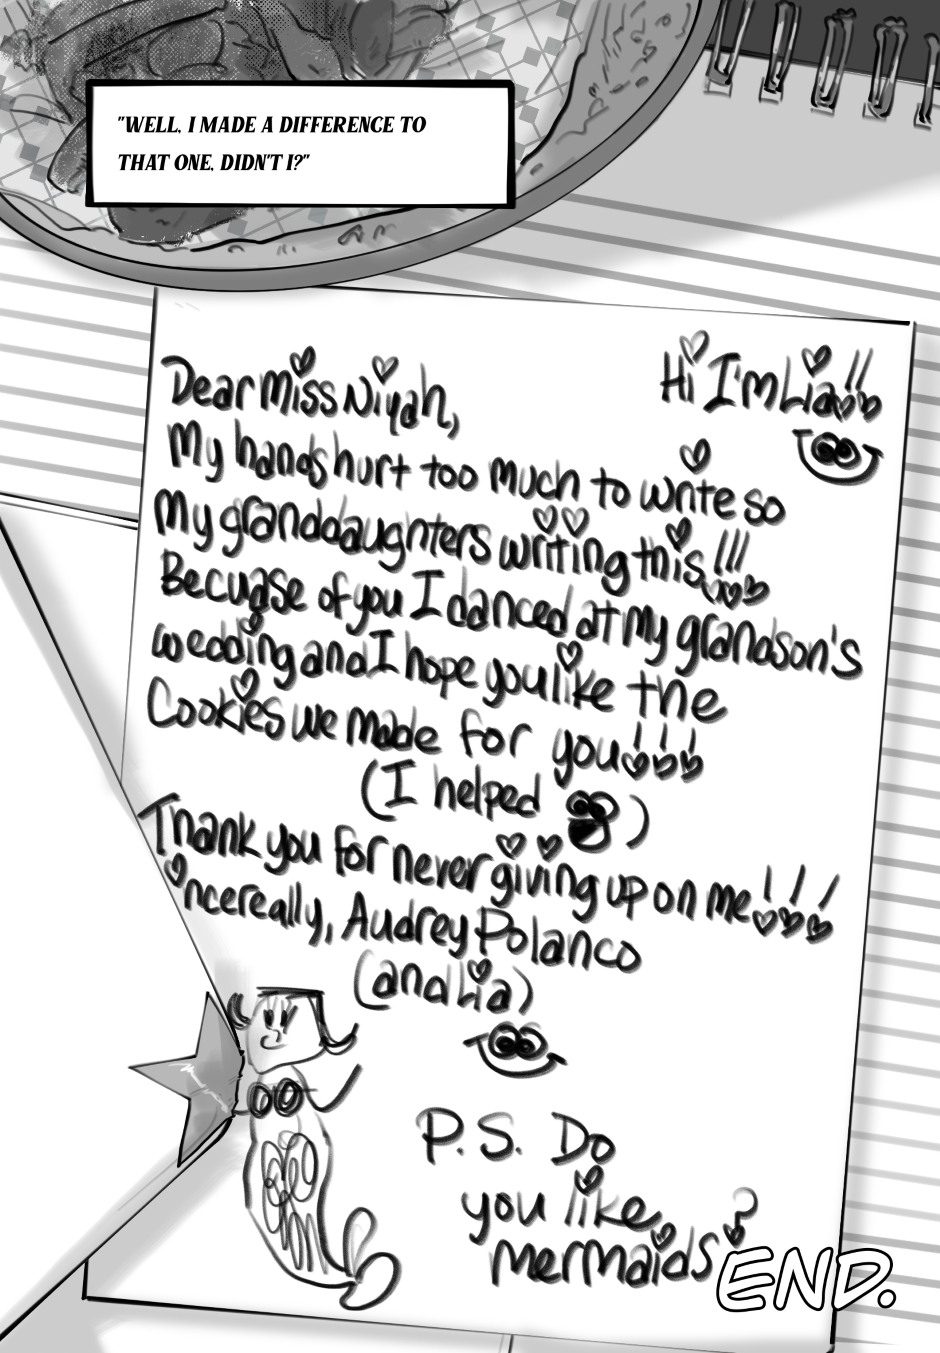 "WELL, I MADE A DIFFERENCE TO
THAT ONE, DIDN'T I?"
Hi I'm Lia!!
Dear Miss Niyah,
My hands hurt too much to write so
My granddaughters writing this!!!
Becuase of you I danced at my grandson's
wedding and I hope you like the
Cookies we made for you!!!
(I helped )
Thank you for never giving up on me!!!
incereally, Audrey Polanco
(and Lia)
P.S. Do
you like
mermaids?
END.